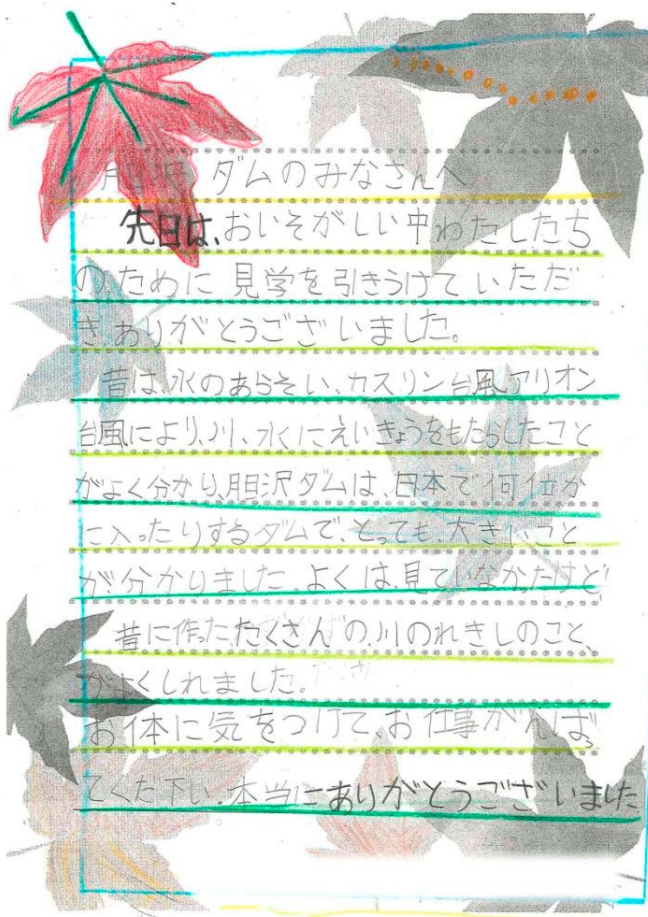 胆沢ダムのみなさんへ
先日は、おいそがしい中わたしたち
のために見学を引きうけていただ
き、ありがとうございました。
昔は、水のあらそい、カスリン台風、アリオン
台風により、川、水にえいきょうをもたらしたこと
がよく分かり、胆沢ダムは、日本で何位か
に入ったりするダムで、とっても、大きいこと
が分かりました。よくは、見ていなかたけど
昔に作った、たくさんの川のれきしのこと、
がよくしれました。
お体に気をつけてお仕事がんばっ
てくだ下い。本当にありがとうございました